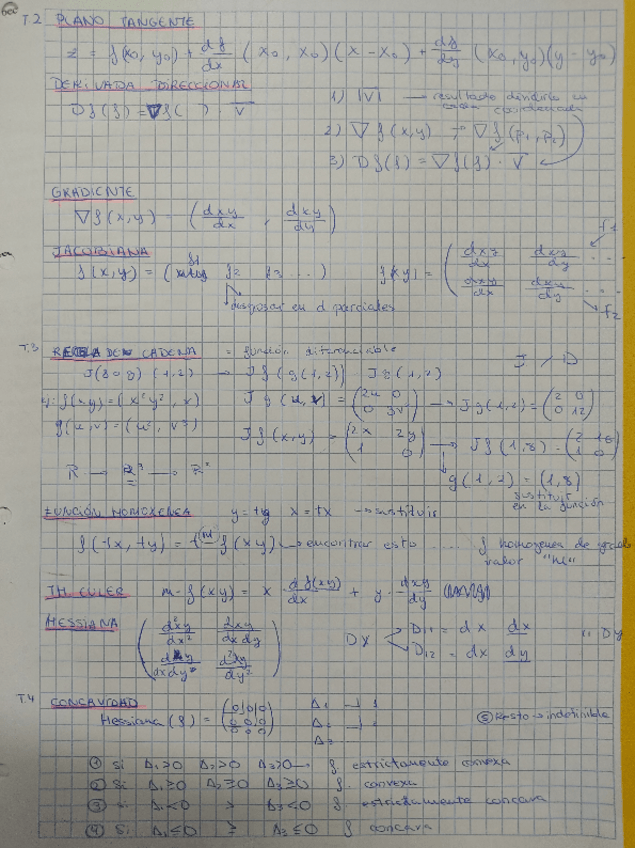 T.2 PLANO TANGENTE
z = f(x₀, y₀) + df/dx (x₀, x₀)(x - x₀) + df/dy (x₀, y₀)(y - y₀)
DERIVADA DIRECCIONAL
Df(f) = ∇f( ) · V
1) |V| → resultado dividirlo en cada coordenada
2) ∇f(x,y) → ∇f(p₁, p₂)
3) Df(f) = ∇f(f) · V
GRADIENTE
∇f(x,y) = (dxy/dx , dxy/dy)
JACOBIANA
f(x,y) = ( f1 f2 f3 ... )
f(xy) = (dxy/dx dxy/dy ... f1
dxy/dx dxy/dy ... f2)
desglosar en d parciales
T.3 REGLA DE CADENA = función diferenciable
J / D
J(f∘g)(1,2) → Jf(g(1,2)) Jg(1,2)
y: f(xy) = (x²y², x)
Jg(u,v) = (2u 0
0 3v) → Jg(1,2) = (2 0
0 12)
g(u,v) = (u², v³)
Jf(x,y) = (2x 2y
1 0) → Jf(1,8) = (2 16
1 0)
g(1,2) = (1,8)
sustituir en la función
FUNCIÓN HOMOXENEA y = ty x = tx → sustituir
f(tx, ty) = t^m f(xy) → encontrar esto .... f homogenea de grado
valor "m"
TH. EULER m·f(xy) = x · df(xy)/dx + y · dxy/dy
HESSIANA
(d²xy/dx² dxy/dxdy
dxdy d²xy/dy²)
DX < D₁₁ = dx dx
D₁₂ = dx dy
" Dy
T.4 CONCAVIDAD
Hessiana (f) = (0 0 0
0 0 0
0 0 0)
Δ₁ → 1
Δ₂ →
Δ₃
⑤ Resto → indefinible
① Si Δ₁>0 Δ₂>0 Δ₃>0 → f. estrictamente convexa
② Si Δ₁≥0 Δ₂≥0 Δ₃≥0 f. convexa
③ Si Δ₁<0 > Δ₃<0 f. estrictamente concava
④ Si Δ₁≤0 ≥ Δ₃≤0 f concava